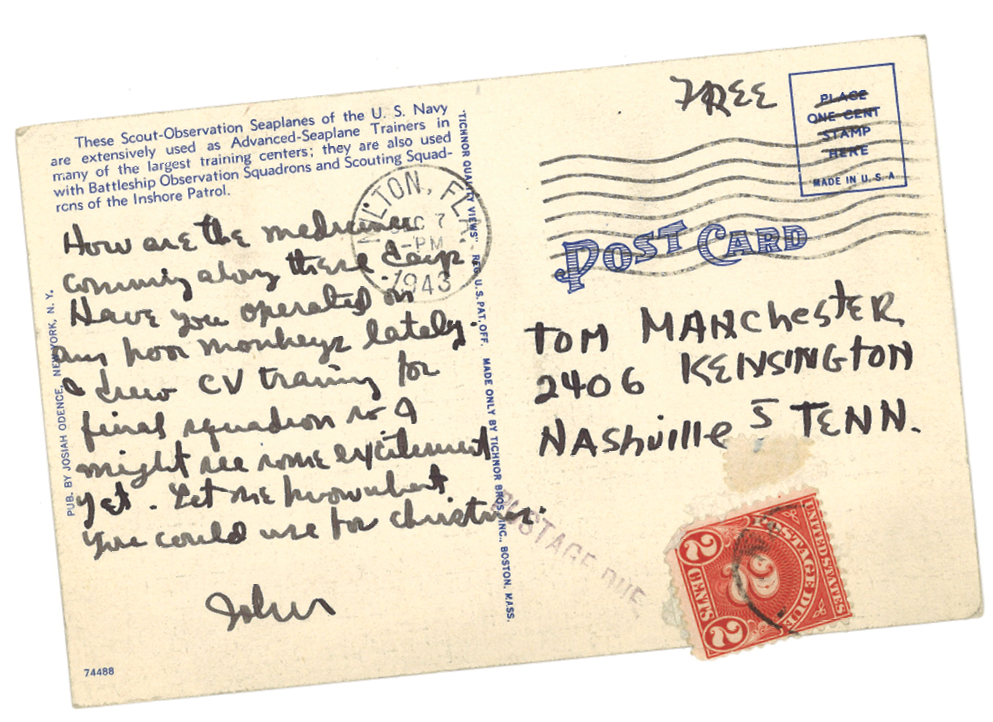 These Scout-Observation Seaplanes of the U. S. Navy
are extensively used as Advanced-Seaplane Trainers in
many of the largest training centers; they are also used
with Battleship Observation Squadrons and Scouting Squad-
rons of the Inshore Patrol.
How are the medicines
coming along these days.
Have you operated on
any poor monkeys lately.
I drew CV training for
final squadron so I
might see some excitement
yet. Let me know what
you could use for christmas.
John
74488
PUB. BY JOSIAH ODENCE, NEW YORK, N. Y.
"TICHNOR QUALITY VIEWS," REG. U. S. PAT. OFF. MADE ONLY BY TICHNOR BROS., INC., BOSTON, MASS.
MILTON, FLA.
DEC 7
-PM
1943
FREE
PLACE
ONE CENT
STAMP
HERE
MADE IN U. S. A
POST CARD
TOM MANCHESTER
2406 KENSINGTON
NAShville 5 TENN.
POSTAGE DUE
UNITED STATES
POSTAGE DUE
2
2 CENTS 2